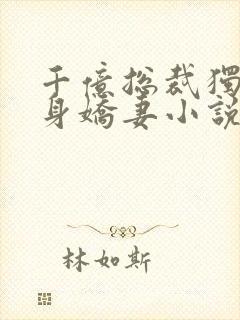 千億總裁獨
身嬌妻小說
林如斯